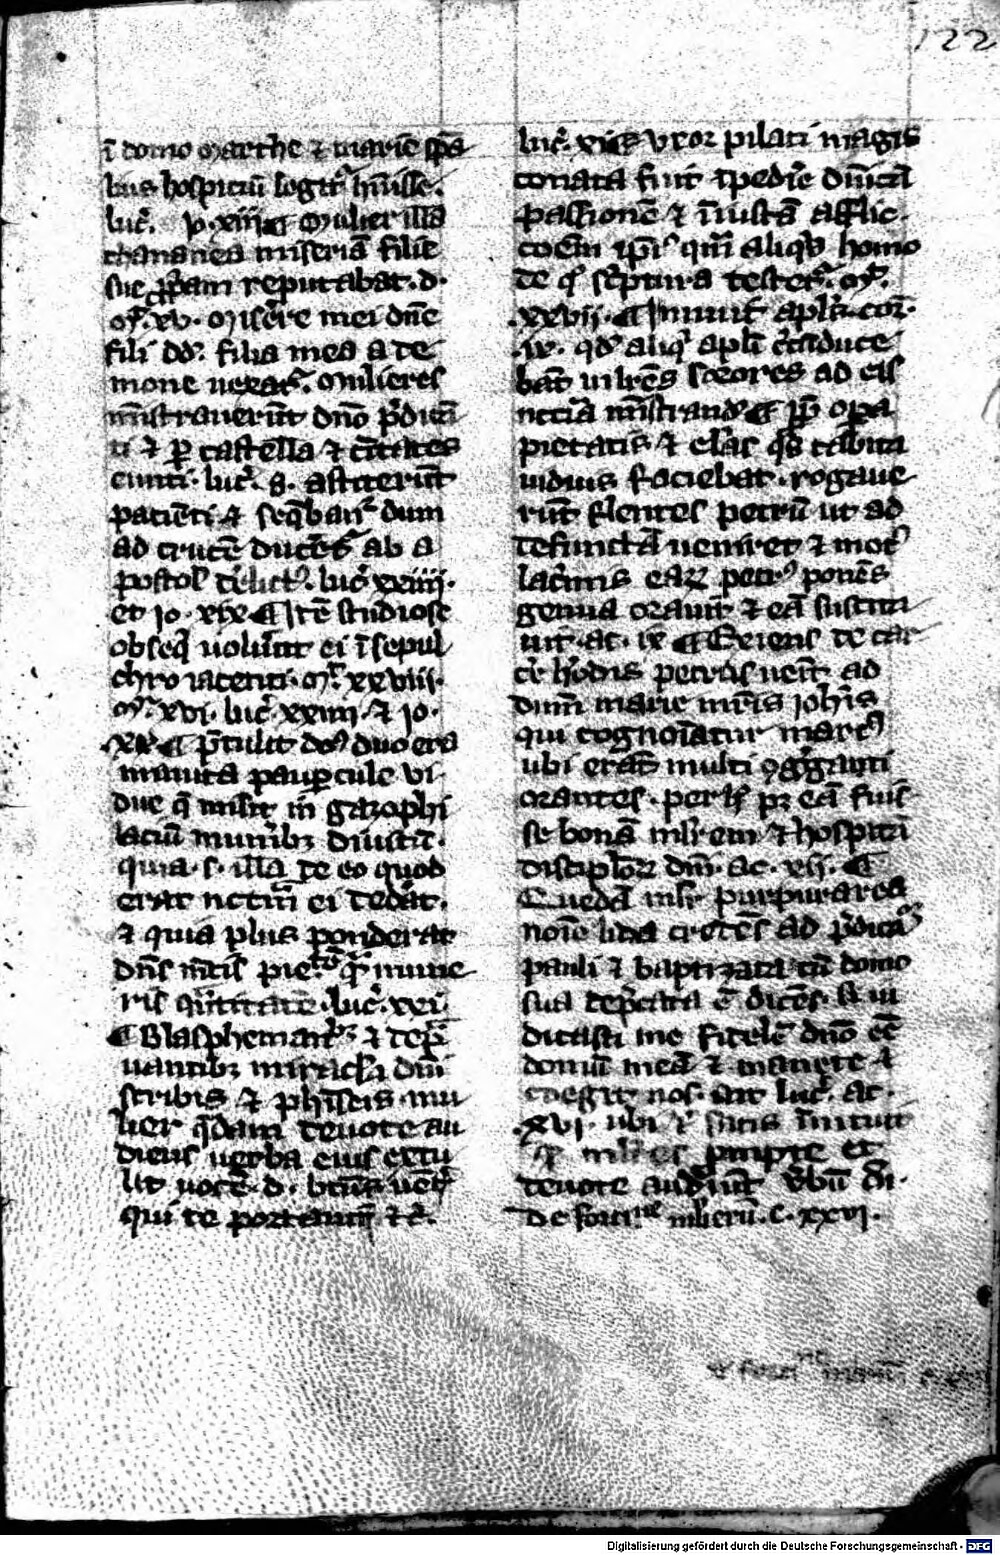 122
ī domo marthe ⁊ marie spā
lius hospiciū legit᷑ hūisse.
luc̄. Io. xiii ¶ Mulier illa
chananea miseriā filie
sue ꝓpam reputabat. d.
Mt̄. xv. Miserere mei dn̄e
fili dd̄. filia mea a de
mone uexat᷑. Mulieres
mīstrauerūt dn̄o p̄dicā
ti ⁊ ꝑ castella ⁊ ciuitates
eunti. luc̄. 8. astiterūt
patiēti ⁊ seq̄bant᷑ dum
ad crucē ducēt᷑ ab a
postol᷑ relict᷑. luc̄ xxiiii.
et Io. xix ¶ Itē studiose
obseq̄ uolūt ei ī sepul
chro iacenti. Mt̄. xxviii.
Mr̄. xvi. luc̄. xxiiii. ⁊ Io.
xix ¶ p̄tulit deꝰ duo era
minuta paupercule vi
due q̄ misit in gazophi
laciū munerib; diuitū.
quia. s. illa de eo quod
erat nc̄m ei dedat.
⁊ quia plus ponderat
dn̄s mētis pietatē q̄m mune
ris q̄ntitatē. luc̄. xxi.
¶ Blasphemantib; ⁊ dep̄
uantib; miracl̄a dn̄i
scribis ⁊ phīseis. mu
lier q̄dam deuote au
diens uerba eius extu
lit uocē. d. beat᷑ uent᷑
qui te portauit ⁊c̄.
luc̄. xi ¶ Vxor pilati magis
conata fuit īpedire dn̄icā
passionē ⁊ iniustā afflic
coēm ip̄iꝰ qm̄ aliq̄s homo
de q̊ sc̄ptura testet᷑. Mt̄.
xxvii. ¶ Innuit apl̄s. cor̄.
ix. qd̄ aliq̄ apl̄i c̄cūduce
bāt mlīeres sorores ad eis
nccīa mīstrand᷑ ¶ ꝓp̄ opa
pietatis ⁊ el̄as q̄s tabita
uiduis faciebat. rogaue
rūt flentes petrū ut ad
defunctā ueniret ⁊ motꝰ
lacrimis eaꝝ petrꝰ ponēs
genua orauit ⁊ eā suscita
uit. ac. ix ¶ Exiens de car
c̄e h̄odis petrus uenit ad
domū marie mr̄is ioh̄is
qui cognoīatur marcꝰ
ubi erāt multi ꝯgregati
orantes. per h̄ pꝫ eā fuis
se bonā mlīerem ⁊ hospitā
discipl̄oꝝ dn̄i. ac. xii. ¶
Quedā mlīer purpuraria
noīe lidia credēs ad p̄dicacōꝫ
pauli ⁊ baptizata cū domo
sua dep̄cata ē dicēs. si iu
dicasti me fidelē dn̄o eē
domū meā ⁊ manete ⁊
coegit nos. ait luc̄. ac.
xvi. ubi satis innuit
q̄ mlīeres prompte et
deuote audierūt ūbū dī.
De fortit̄ne mlīerū. c. xxvi.
Digitalisierung gefördert durch die Deutsche Forschungsgemeinschaft - DFG